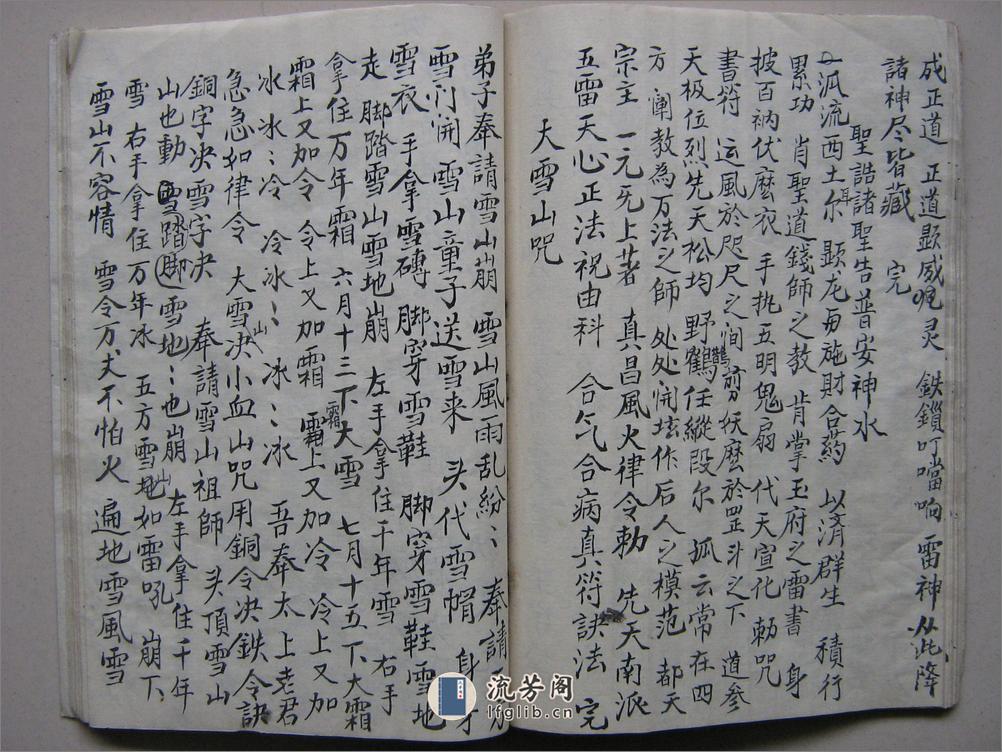 成正道 正道顕威灵 鉄鎖叮噹响 雷神从此降
諸神尽皆藏 完
聖誥諸聖告普安神水
流西土尔耳 顕龙 施財合药 以済群生 積行
累功 肖聖道錢師之教 肯掌玉府之雷書 身
披百衲伏麽衣 手执五明鬼扇 代天宣化 勅咒
書符 运風於咫尺之间 剪妖麽於罡斗之下 道参
天极位烈先天松均 野鶴任縱段尔 孤云常在四
方 阐教為万法之師 处处開坛作后人之模范 都天
宗主 一元无上著 真昌風火律令勅 先天南派
五雷天心正法祝由科 合气合病真符訣法 完
大雪山咒
弟子奉請雪山崩 雪山風雨乱紛〻 奉請
雪门開 雪山童子送雪来 头代雪帽 身
雪衣 手拿雪磚 脚穿雪鞋 脚穿雪鞋雪地
走 脚踏雪山雪地崩 左手拿住千年雪 右手
拿住万年霜 六月十三下大雪霜 七月十五下大霜
霜上又加令 令上又加霜 霜上又加冷 冷上又加
冰 冰〻冷 冷冰〻 冰〻冰 吾奉太上老君
急急如律令 大雪山决小血山咒用銅令决鉄令訣
銅字决雪字决 奉請雪山祖師 头頂雪山
山也動 雪踏脚雪地〻也崩 左手拿住千年
雪 右手拿住万年冰 五方雪山地如雷吼 崩下
雪山不容情 雪令万丈不怕火 遍地雪風雪
流芳阁
lfglib.cn